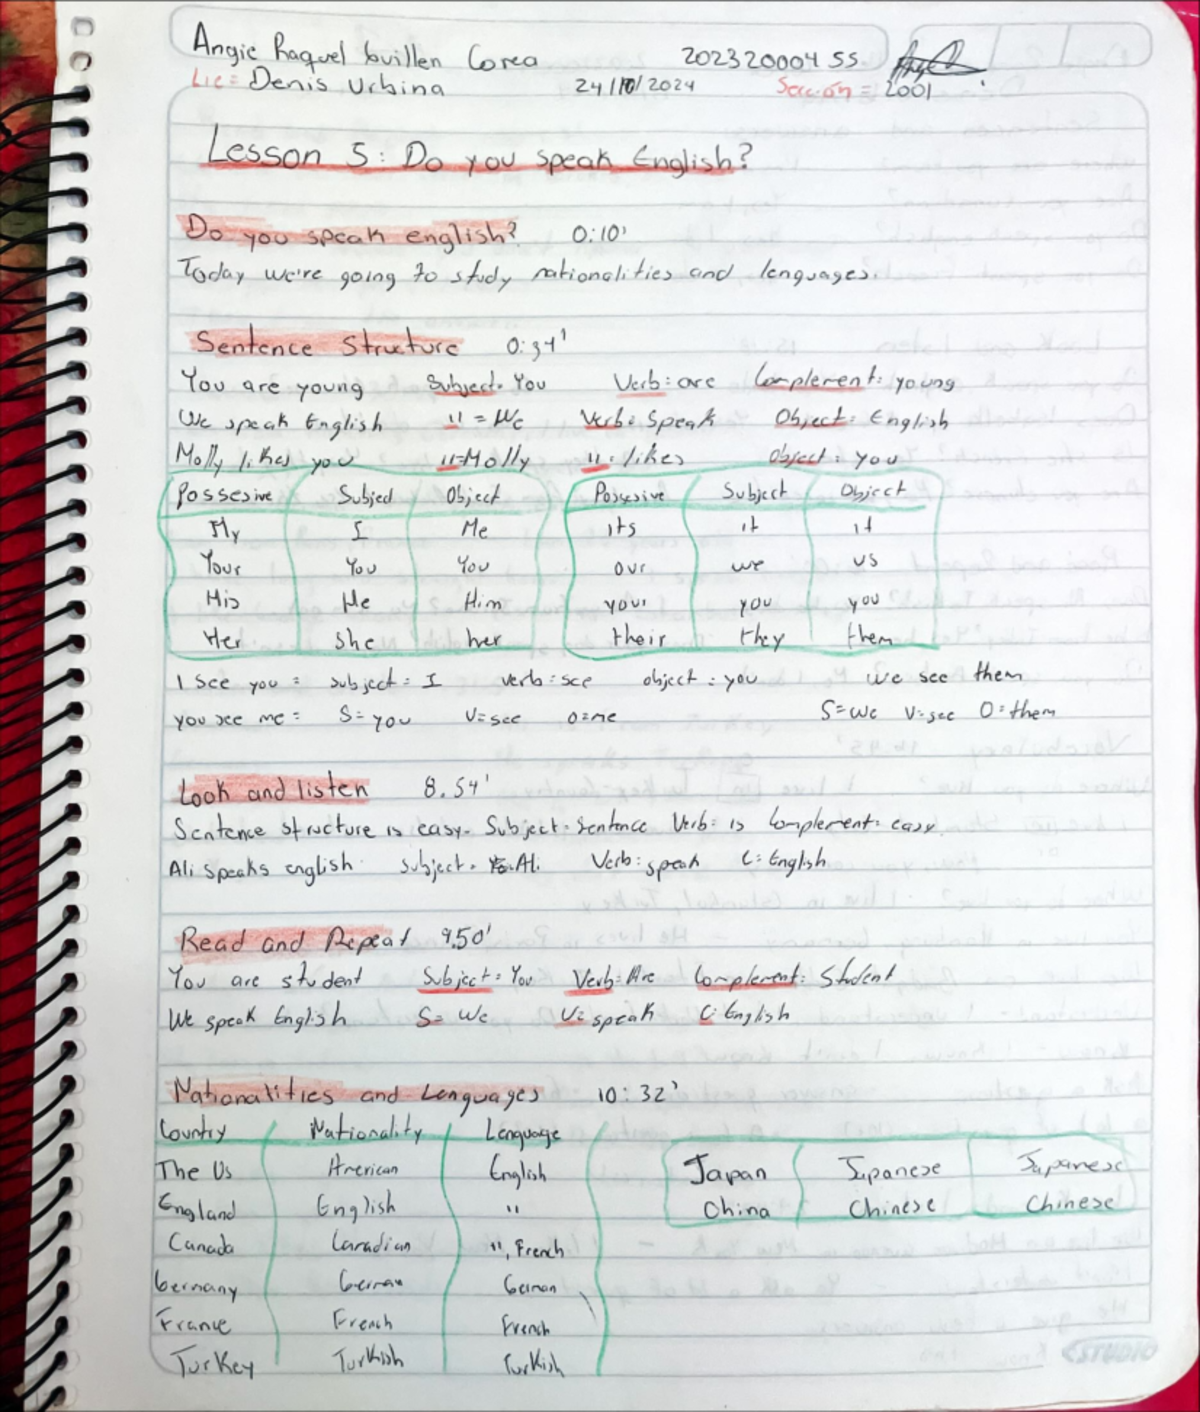 Angie Raquel Guillen Corea 20232000455
Lic = Denis Urbina 24/10/2024 Sección = 2001
Lesson 5: Do you speak English?
Do you speak english? 0:10'
Today we're going to study nationalities and lenguages.
Sentence Structure 0:34'
You are young Subject = You Verb: are Complement: young
We speak English " = We Verb: Speak Object: English
Molly likes you "=Molly " : likes object: you
Possesive Subjed Object Possesive Subject Object
My I Me its it it
Your You You our we us
His He Him your you you
Her She her their they them
I see you = subject = I verb = see object : you we see them
you see me = S= you V= see o=me S=we V=see O=them
Look and listen 8.54'
Sentence structure is easy. Subject = Sentence Verb: is Complement: easy.
Ali speaks english subject = Ali Verb: speak C: English
Read and Repeat 9.50'
You are student Subject = You Verb: Are Complement: Student
We speak English S= We V= speak C: English
Nationalities and Lenguages 10:32'
Country Nationality Lenguage
The Us American English Japan Japanese Japanese
England English " China Chinese Chinese
Canada Canadian ", French
Germany German German
France French French
Turkey Turkish Turkish
STUDIO